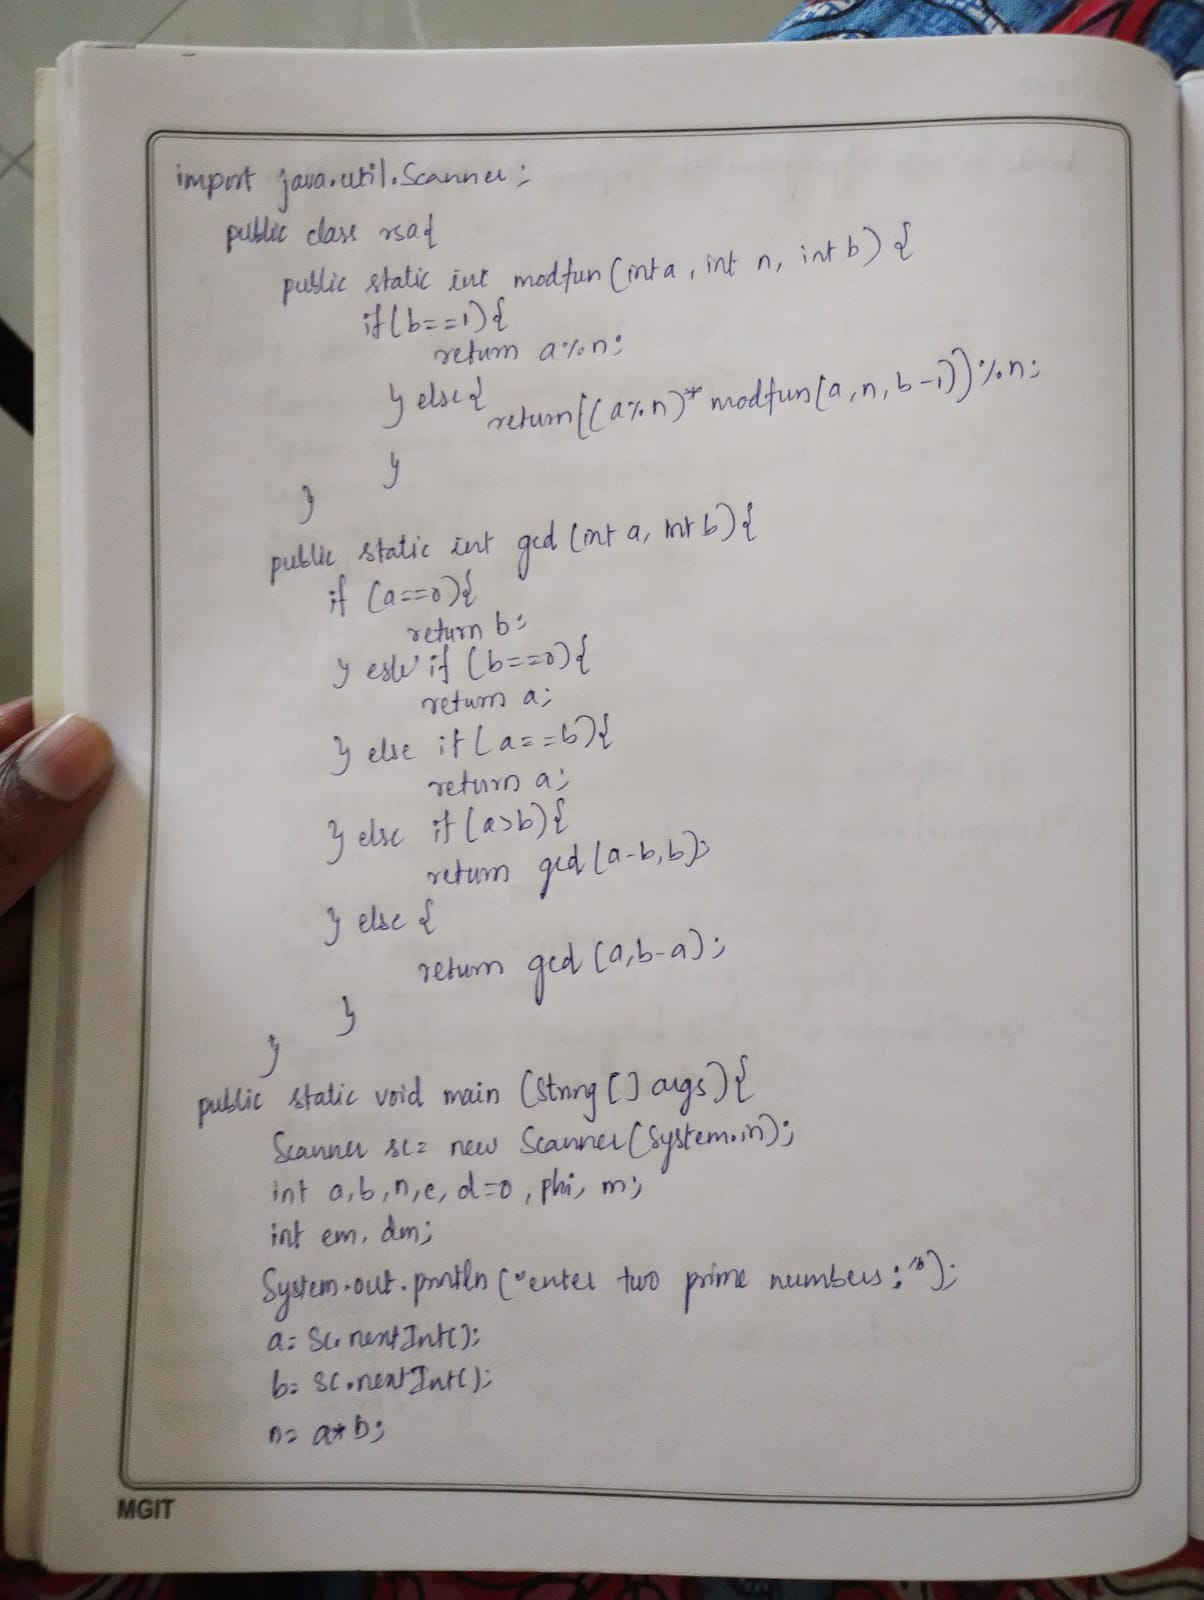 import java.util.Scanner;
public class rsa{
public static int modfun (int a, int n, int b) {
if(b==1){
return a%n;
} else{
return((a%n)* modfun(a,n,b-1))%n;
}
}
public static int gcd (int a, int b){
if (a==0){
return b;
} esle if (b==0){
return a;
} else if(a==b){
return a;
} else if (a>b){
return gcd (a-b,b);
} else {
return gcd (a,b-a);
}
}
public static void main (String [] args){
Scanner sc= new Scanner(System.in);
int a,b,n,e, d=0, phi, m;
int em, dm;
System.out.println ("enter two prime numbers:");
a= sc.nextInt();
b= sc.nextInt();
n= a*b;
MGIT